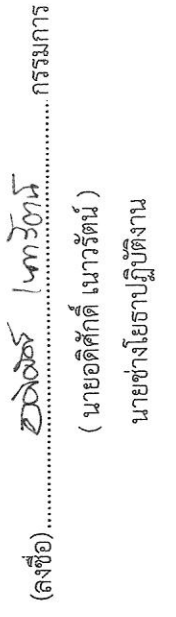 (ลงชื่อ)........อดิศักดิ์ เนาวรัตน์........กรรมการ
( นายอดิศักดิ์ เนาวรัตน์ )
นายช่างโยธาปฏิบัติงาน